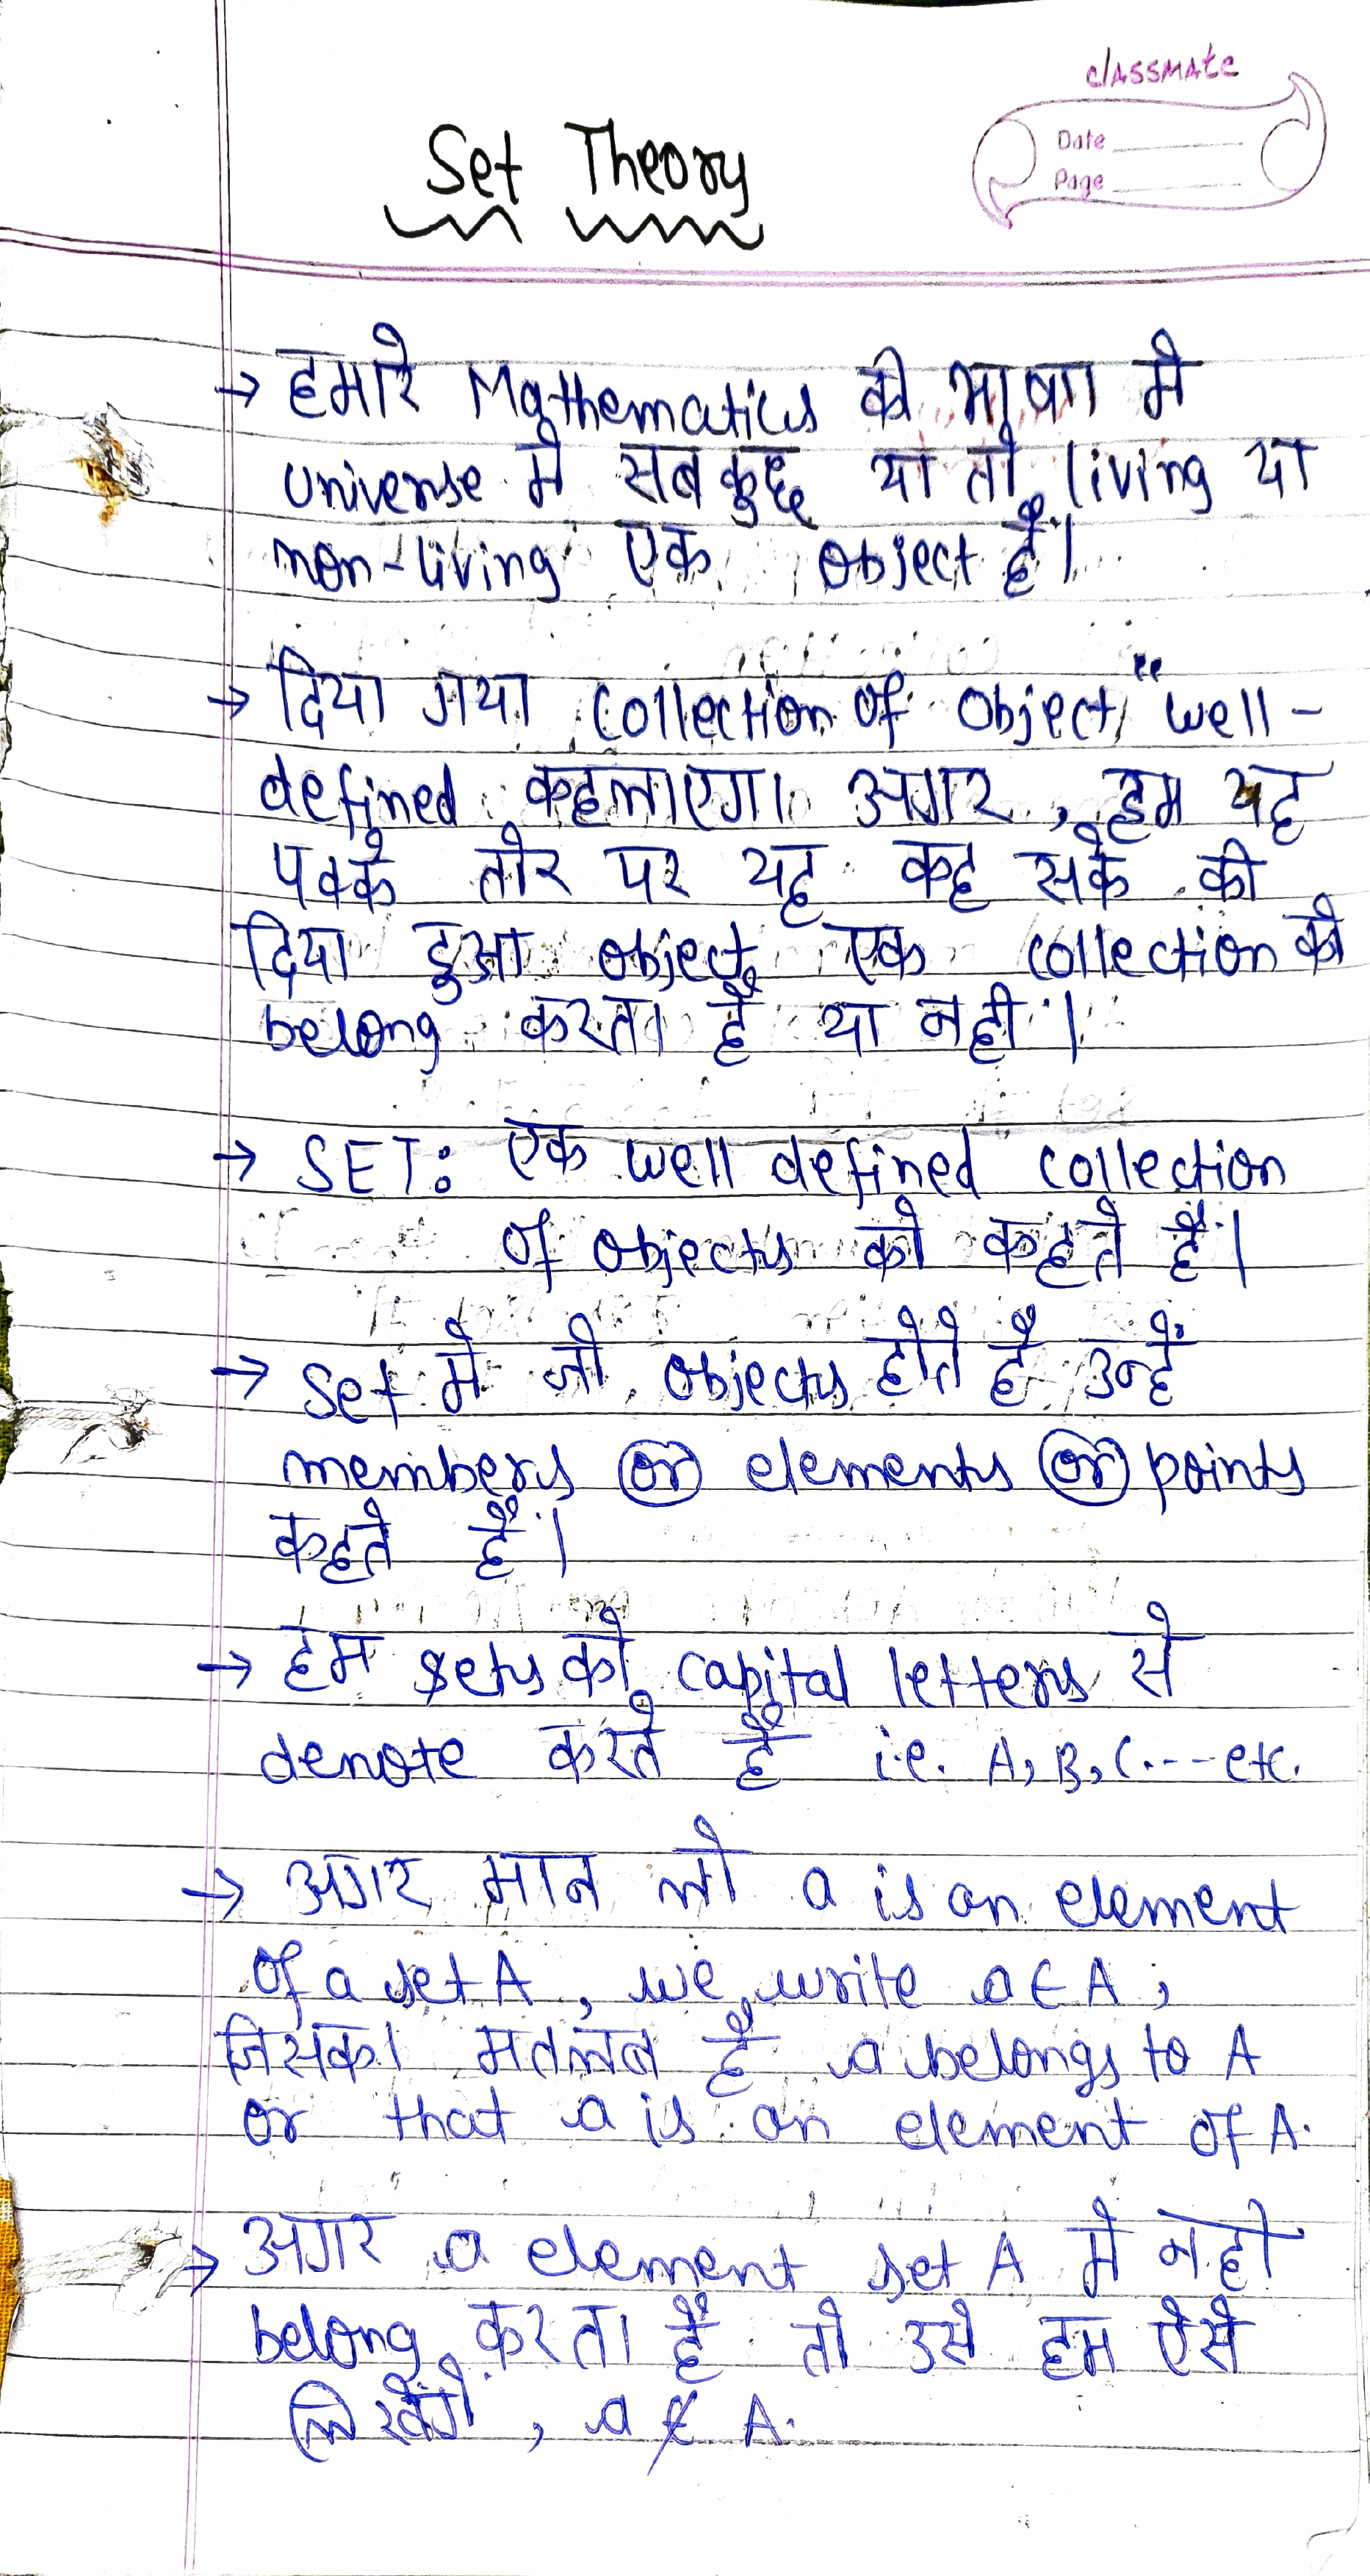 classmate
Date
Page
Set Theory
→ हमारे Mathematics की भाषा मे
universe मे सबकुछ या तो living या
non-living एक object है।
→ दिया गया collection of object "well-
defined कहलाएगा अगर, हम यह
पक्के तौर पर यह कह सके की
दिया हुआ object एक collection को
belong करता है या नही।
→ SET: एक well defined collection
of objects को कहते है।
→ Set मे जो objects होते है उन्हें
members or elements or points
कहते हैं।
→ हम sets को capital letters से
denote करते है i.e. A, B, C.--- etc.
→ अगर मान लो a is an element
of a set A, we write a ∈ A,
जिसका मतलब है a belongs to A
or that a is an element of A.
→ अगर a element set A मे नही
belong करता है तो उसे हम ऐसे
लिखेंगे, a ∉ A.